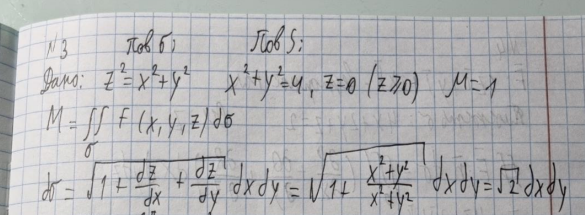 N3 Пов б; Пов S;
Дано: z² = x² + y² x² + y² = 4, z = 0 (z ≥ 0) M = 1
M = ∬ f (x, y, z) dσ
σ
dσ = √(1 + dz/dx + dz/dy) dx dy = √(1 + (x² + y²)/(x² + y²)) dx dy = √2 dx dy